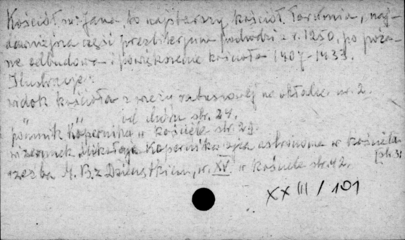 Kościół św. Jana, to najstarszy kościół Torunia, naj-
dawniejsza część prezbiterjum pochodzi z r. 1250, po poża-
rze odbudowa i powiększenie kościoła 1407-1433.
Ilustracje:
widok kościoła z wieżą na okładce nr. 2.
od dołu str. 24.
pomnik Kopernika w kościele str. 29
wizerunek Mikołaja Kopernika astronoma w kościele
str. 31
rzeźba M.B. z Dzieciątkiem, w. XV w kościele str. 42.
XXIII/101